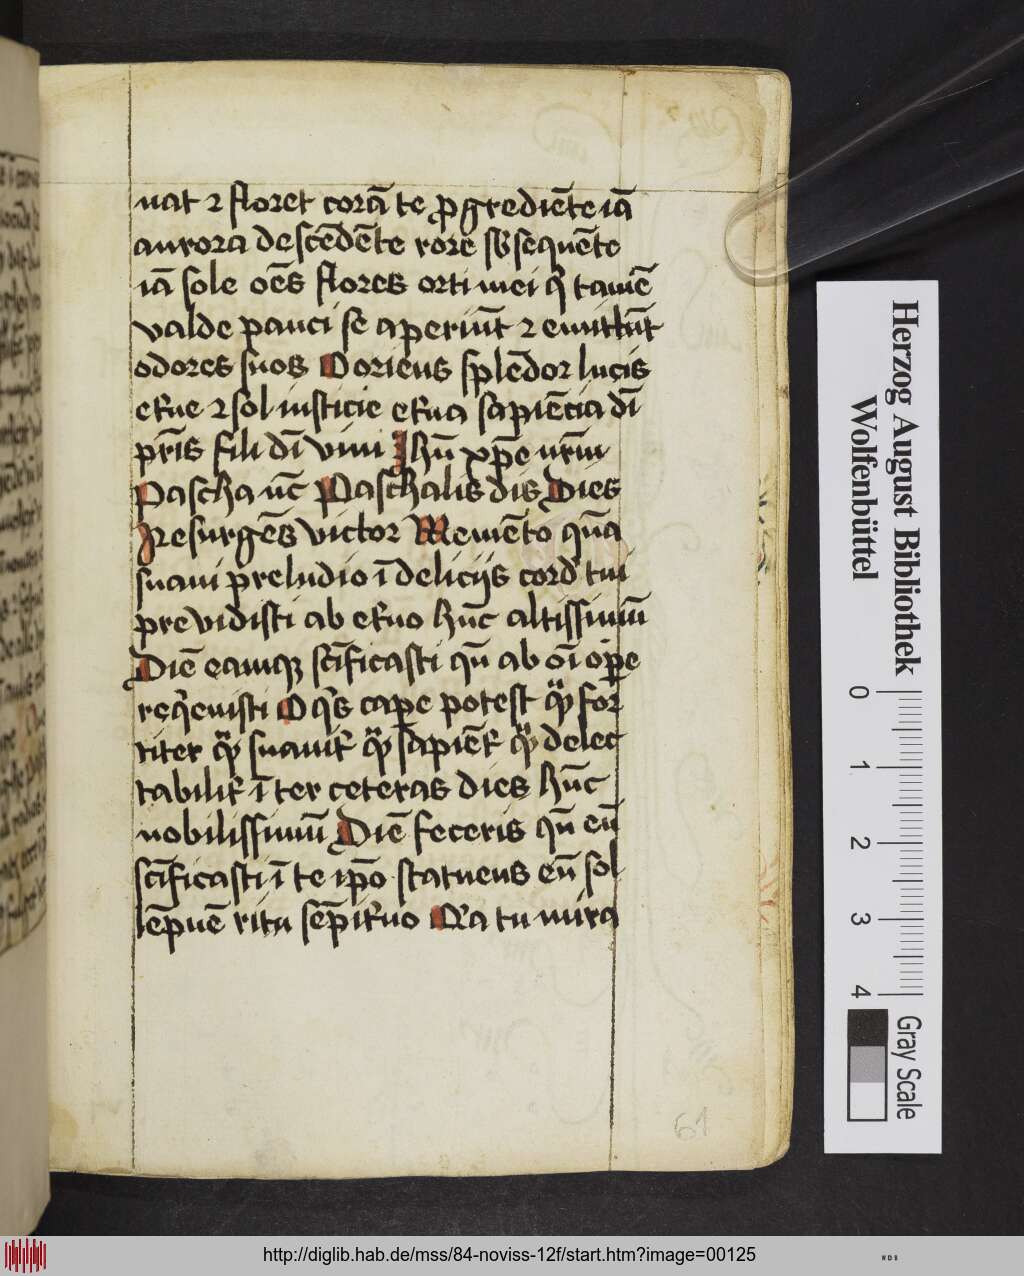 nat ⁊ floret corā te ꝓgrediēte iā
aurora descēdēte rore sb̄sequēte
iā sole oēs flores orti mei qͥ tamē
valde pauci se aperiūt ⁊ emittūt
odores suos O oriens splēdor lucis
et᷑ne ⁊ sol iusticie et᷑na sapiēcia dī
pr̄is fili dī viui Jhū xp̄e nr̄m
Pascha nc̄ Paschalis dis Dies
Resurgēs victor Memēto qn̄a
suaui preludio ī delicijs cord tui
previdisti ab et᷑no hūc altissimū
Diē eamqꝫ scīficasti qn̄ ab oī oꝑe
reqͥeuisti O qͥs caꝑe potest qͣꝫ for
titer qͣꝫ suauit᷑ qͣꝫ sapiēt᷑ qͣꝫ delec
tabilit᷑ īter ceteras dies hūc
nobilissimū Diē feceris qn̄ eū
scīficasti ī te ip̄o statuens eū sol
lēpnē ritu sēpit᷑no Qͥa tu mira
61
Herzog August Bibliothek
Wolfenbüttel
0 1 2 3 4
Gray Scale
http://diglib.hab.de/mss/84-noviss-12f/start.htm?image=00125